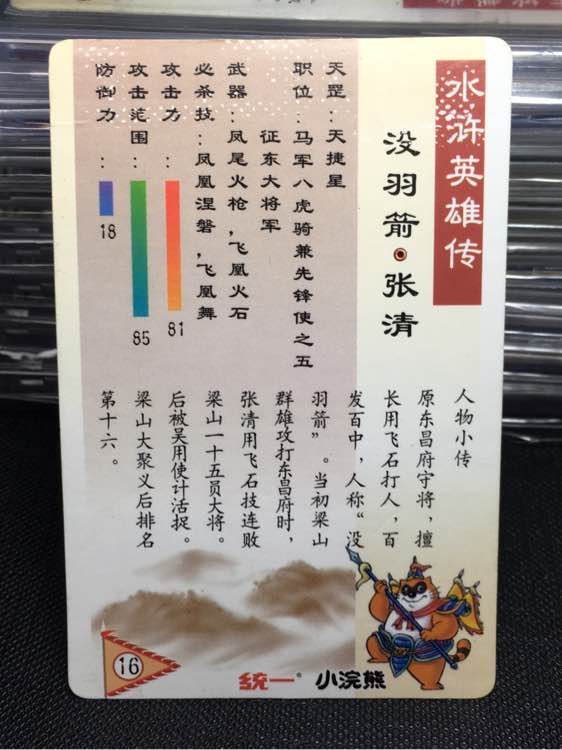 水浒英雄传
没羽箭·张清
天罡：天捷星
职位：马军八虎骑兼先锋使之五
征东大将军
武器：凤尾火枪，飞凰火石
必杀技：凤凰涅磐，飞凰舞
攻击力：
81
攻击范围：
85
防御力：
18
人物小传
原东昌府守将，擅
长用飞石打人，百
发百中，人称“没
羽箭”。当初梁山
群雄攻打东昌府时，
张清用飞石技连败
梁山一十五员大将。
后被吴用使计活捉。
梁山大聚义后排名
第十六。
16
统一® 小浣熊